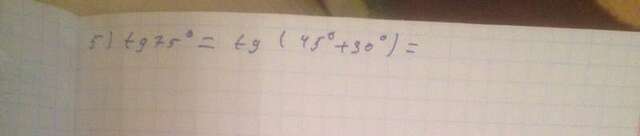 5) tg 75° = tg (45° + 30°) =